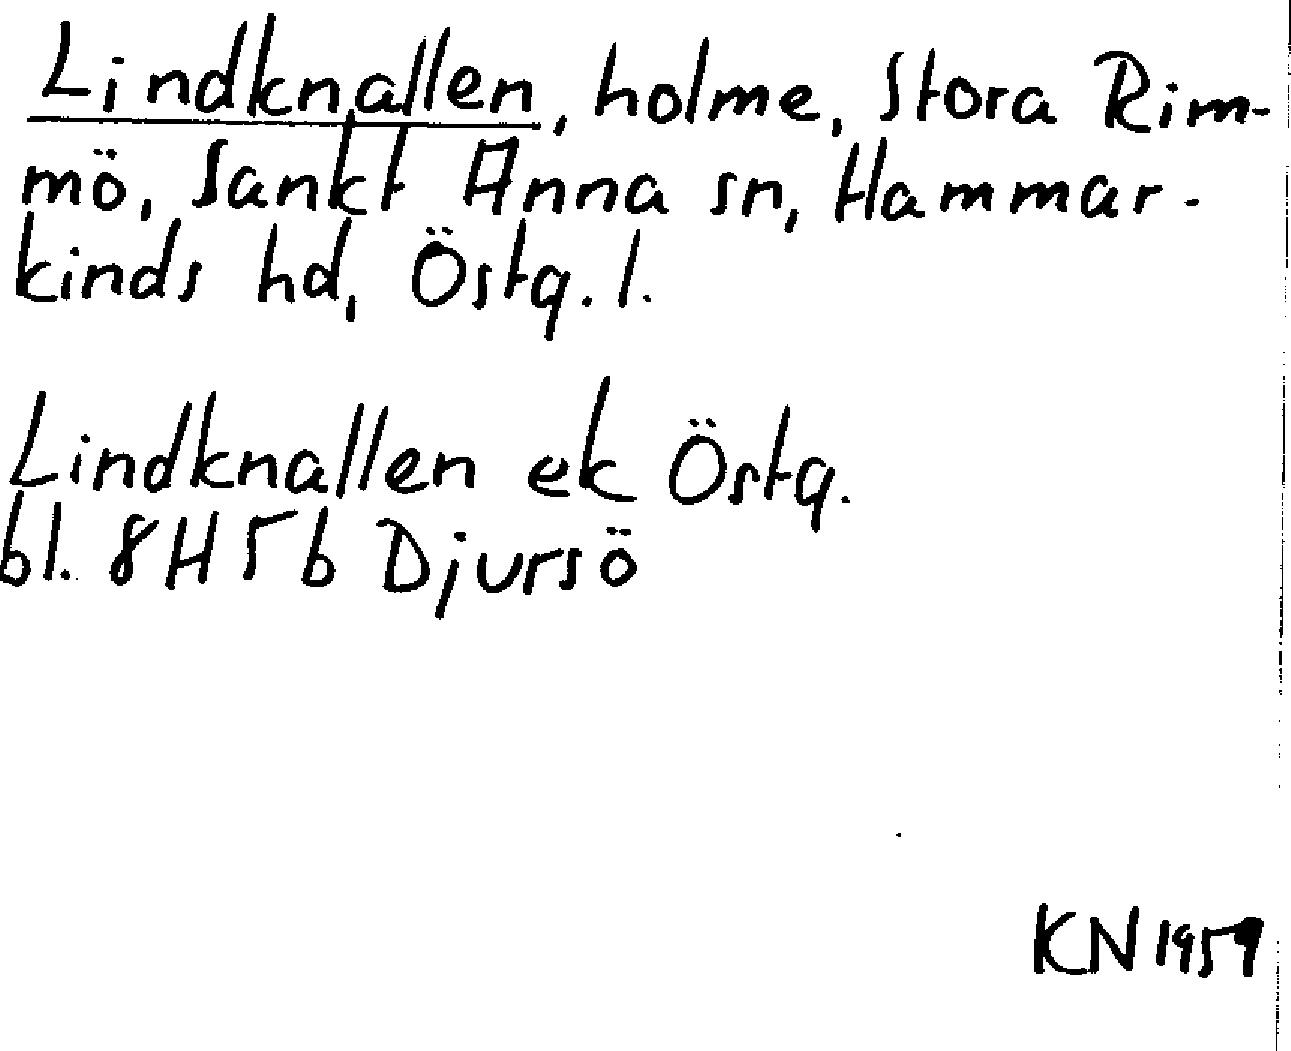 Lindknallen, holme, Stora Rim-
mö, Sankt Anna sn, Hammar-
kinds hd, Östg. l.
Lindknallen ek Östg.
bl. 8H 5b Djursö
KN 1959